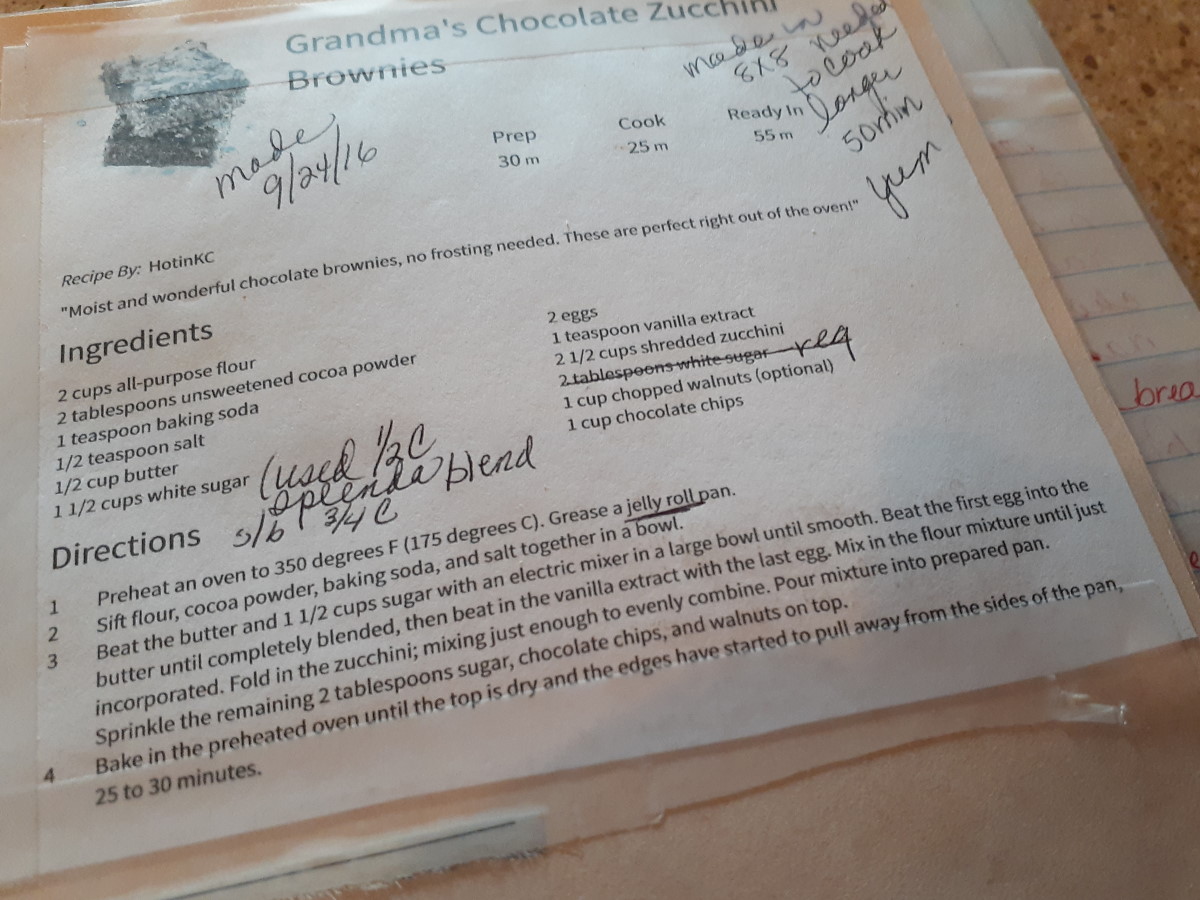 Grandma's Chocolate Zucchini
Brownies
made in
8x8 needed
to cook
longer
50 min
yum
made
9/24/16
Prep
30 m
Cook
25 m
Ready In
55 m
Recipe By: HotinKC
"Moist and wonderful chocolate brownies, no frosting needed. These are perfect right out of the oven!"
Ingredients
2 cups all-purpose flour
2 tablespoons unsweetened cocoa powder
1 teaspoon baking soda
1/2 teaspoon salt
1/2 cup butter
1 1/2 cups white sugar (used 1/2 C
Splenda blend
s/b 3/4 C
2 eggs
1 teaspoon vanilla extract
2 1/2 cups shredded zucchini
2 tablespoons white sugar
1 cup chopped walnuts (optional)
1 cup chocolate chips
Directions
1 Preheat an oven to 350 degrees F (175 degrees C). Grease a jelly roll pan.
2 Sift flour, cocoa powder, baking soda, and salt together in a bowl.
3 Beat the butter and 1 1/2 cups sugar with an electric mixer in a large bowl until smooth. Beat the first egg into the
butter until completely blended, then beat in the vanilla extract with the last egg. Mix in the flour mixture until just
incorporated. Fold in the zucchini; mixing just enough to evenly combine. Pour mixture into prepared pan.
Sprinkle the remaining 2 tablespoons sugar, chocolate chips, and walnuts on top.
4 Bake in the preheated oven until the top is dry and the edges have started to pull away from the sides of the pan,
25 to 30 minutes.
brea